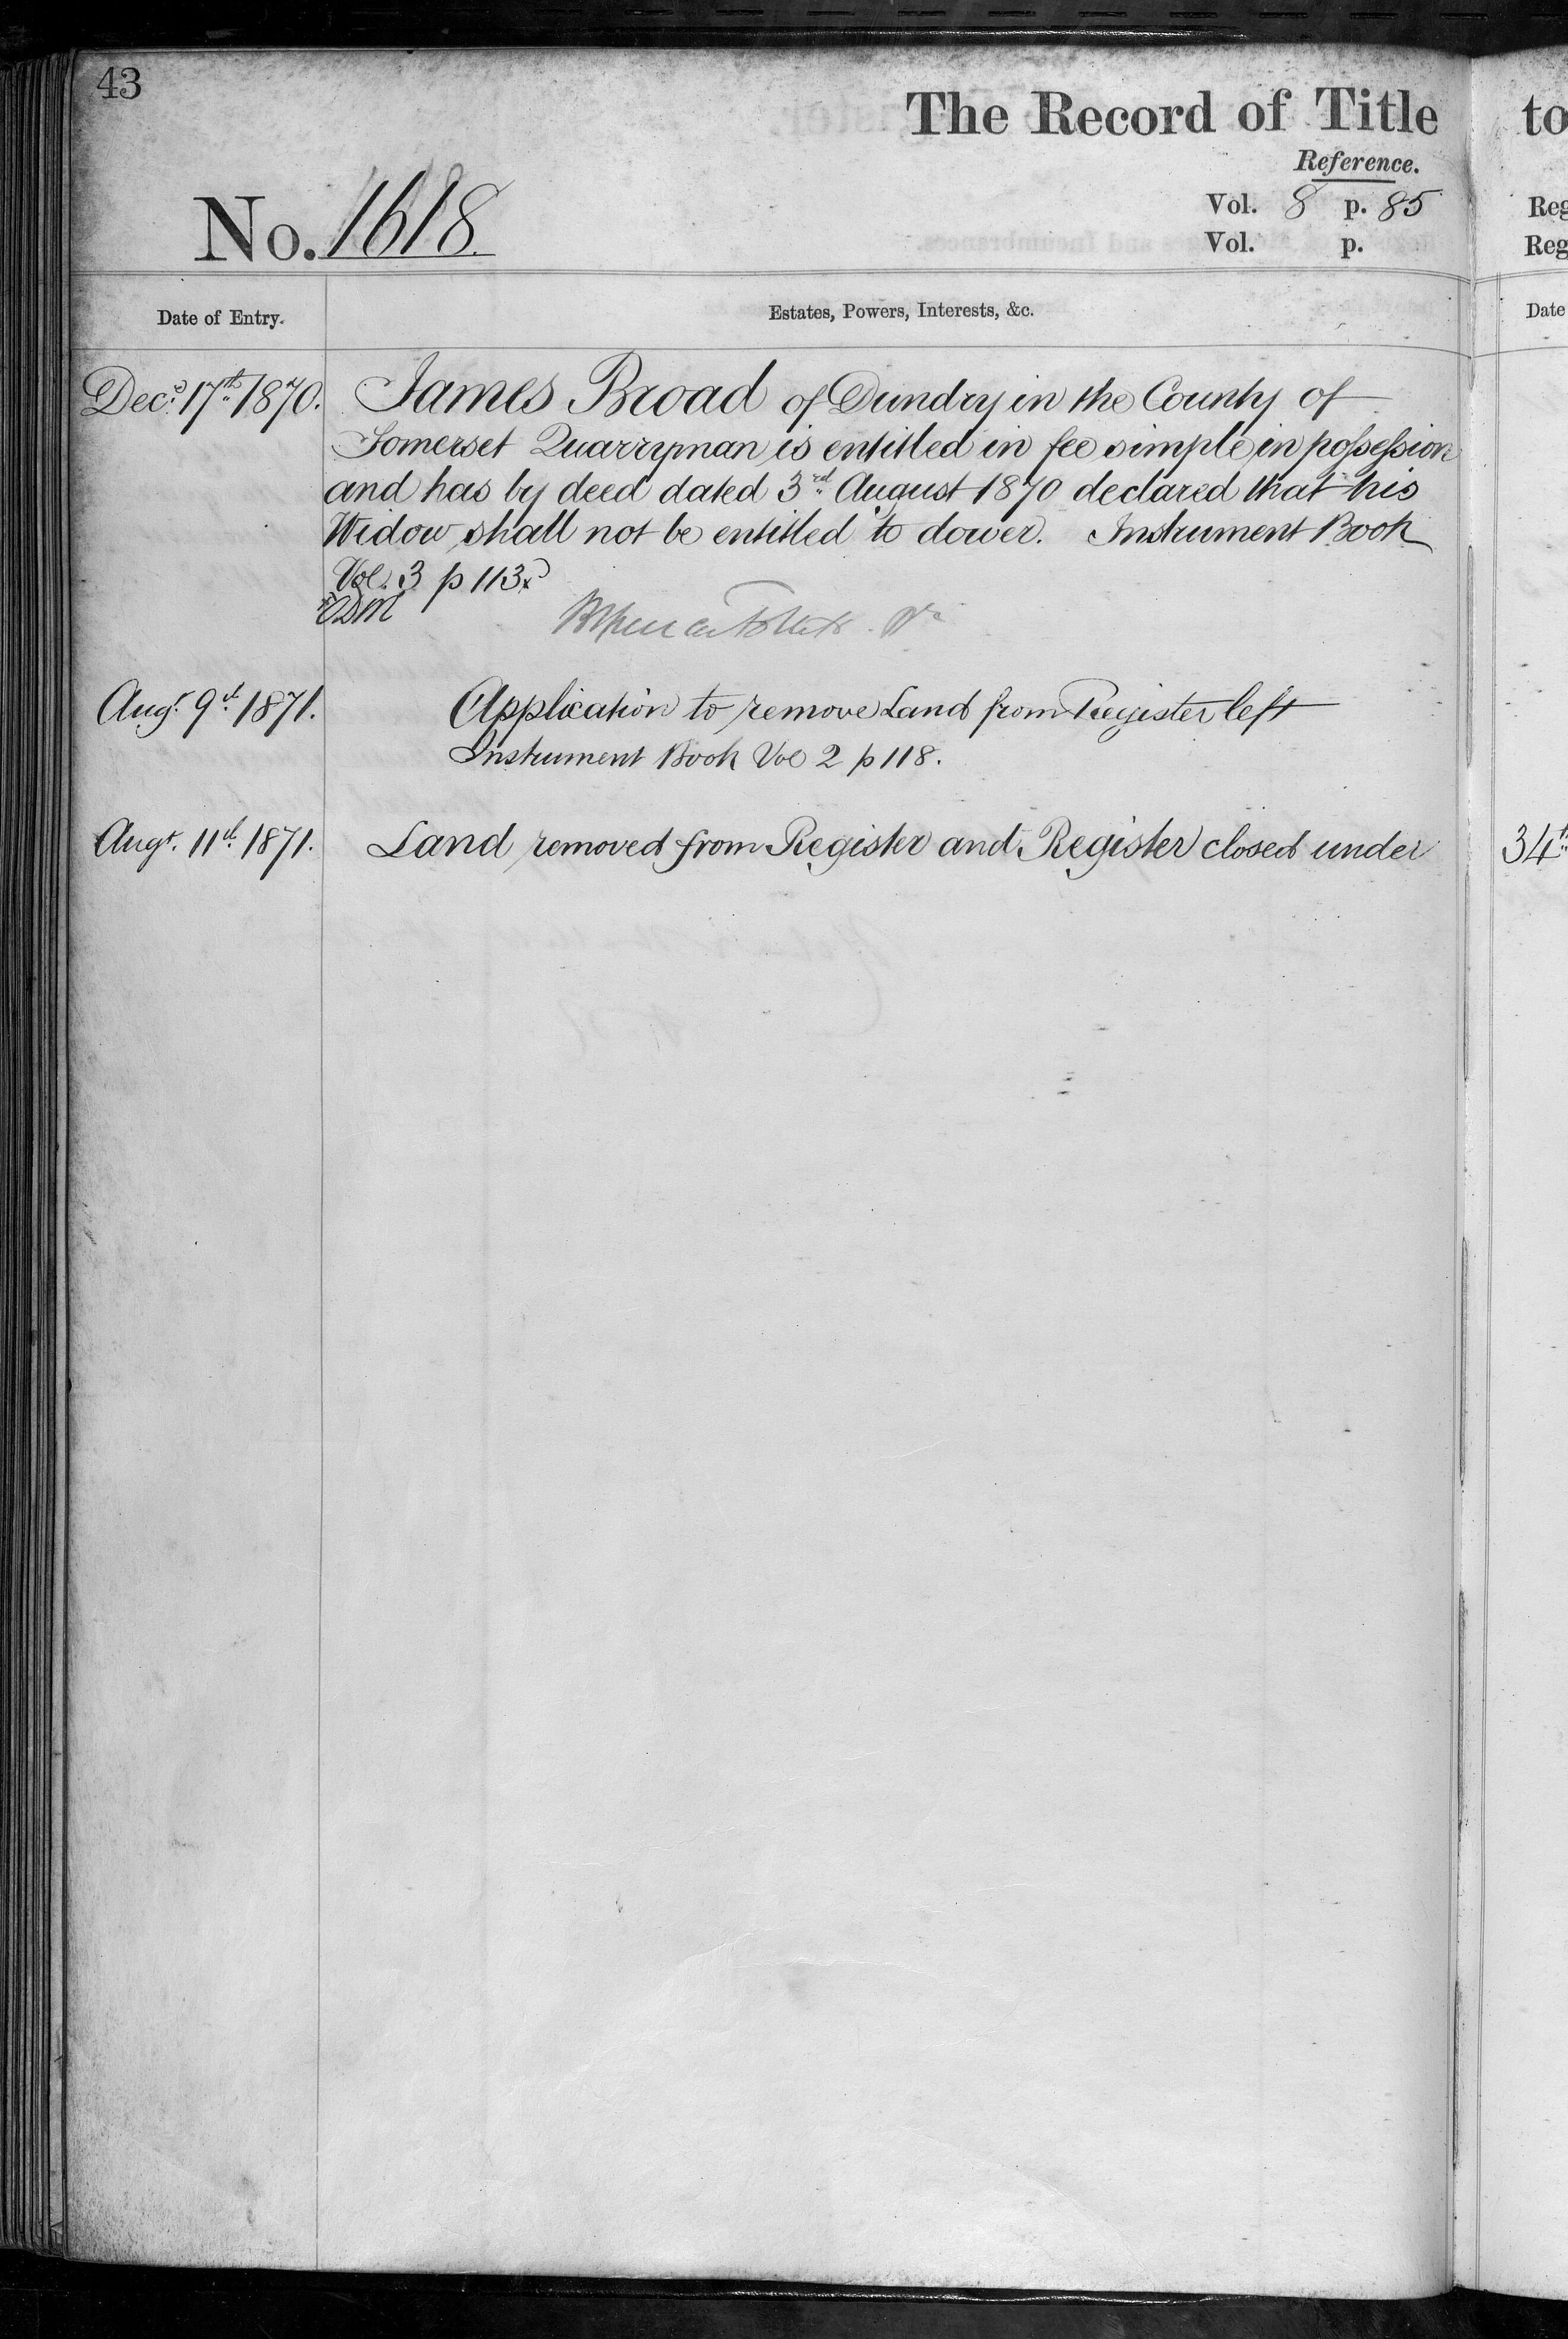 43
The Record of Title
to
Reference.
No. 1618.
Vol. 8 p. 85
Reg
Vol. p.
Reg
Date of Entry.
Estates, Powers, Interests, &c.
Date
Decr. 17th 1870.
James Broad of Dundry in the County of
Somerset Quarryman is entitled in fee simple in possession
and has by deed dated 3rd August 1870 declared that his
Widow shall not be entitled to dower. Instrument Book
Vol. 3 p 113x
Augt. 9th 1871.
Application to remove Land from Register left
Instrument Book Vol 2 p 118.
Augt. 11th 1871.
Land removed from Register and Register closed under
34th